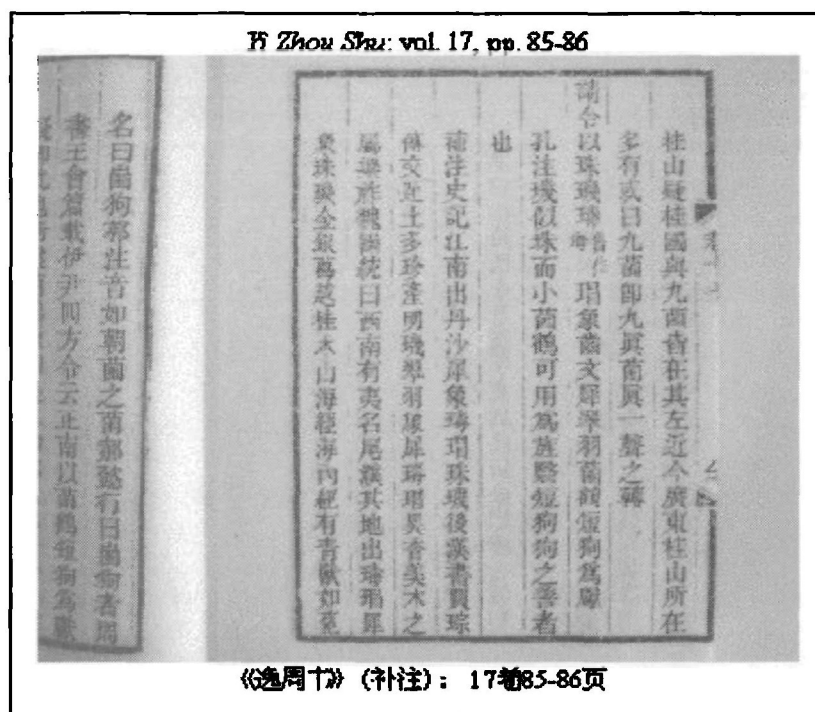 Yi Zhou Shu: vol. 17, pp. 85-86
桂山疑桂國與九菌皆在其左近今廣東桂山所在
多有或曰九菌卽九眞菌眞一聲之轉
請令以珠璣瑇舊作瑁象齒文犀翠羽菌鶴短狗爲獻
孔注璣似珠而小菌鶴可用爲旌翳短狗狗之善者
也
補注史記江南出丹沙犀象瑇瑁珠璣後漢書賈琮
傳交趾土多珍產明璣翠羽象犀瑇瑁異香美木之
屬魏國統曰西南有夷名尾濮其地出瑇瑁犀
象珠璣金銀葛越桂木山海經海內經有青獸如菟
名曰狗郭注音如朝菌之菌郝懿行曰狗者周
書王會篇載伊尹四方令云正南以菌鶴短狗爲獻
《逸周书》(补注)： 17卷85-86页